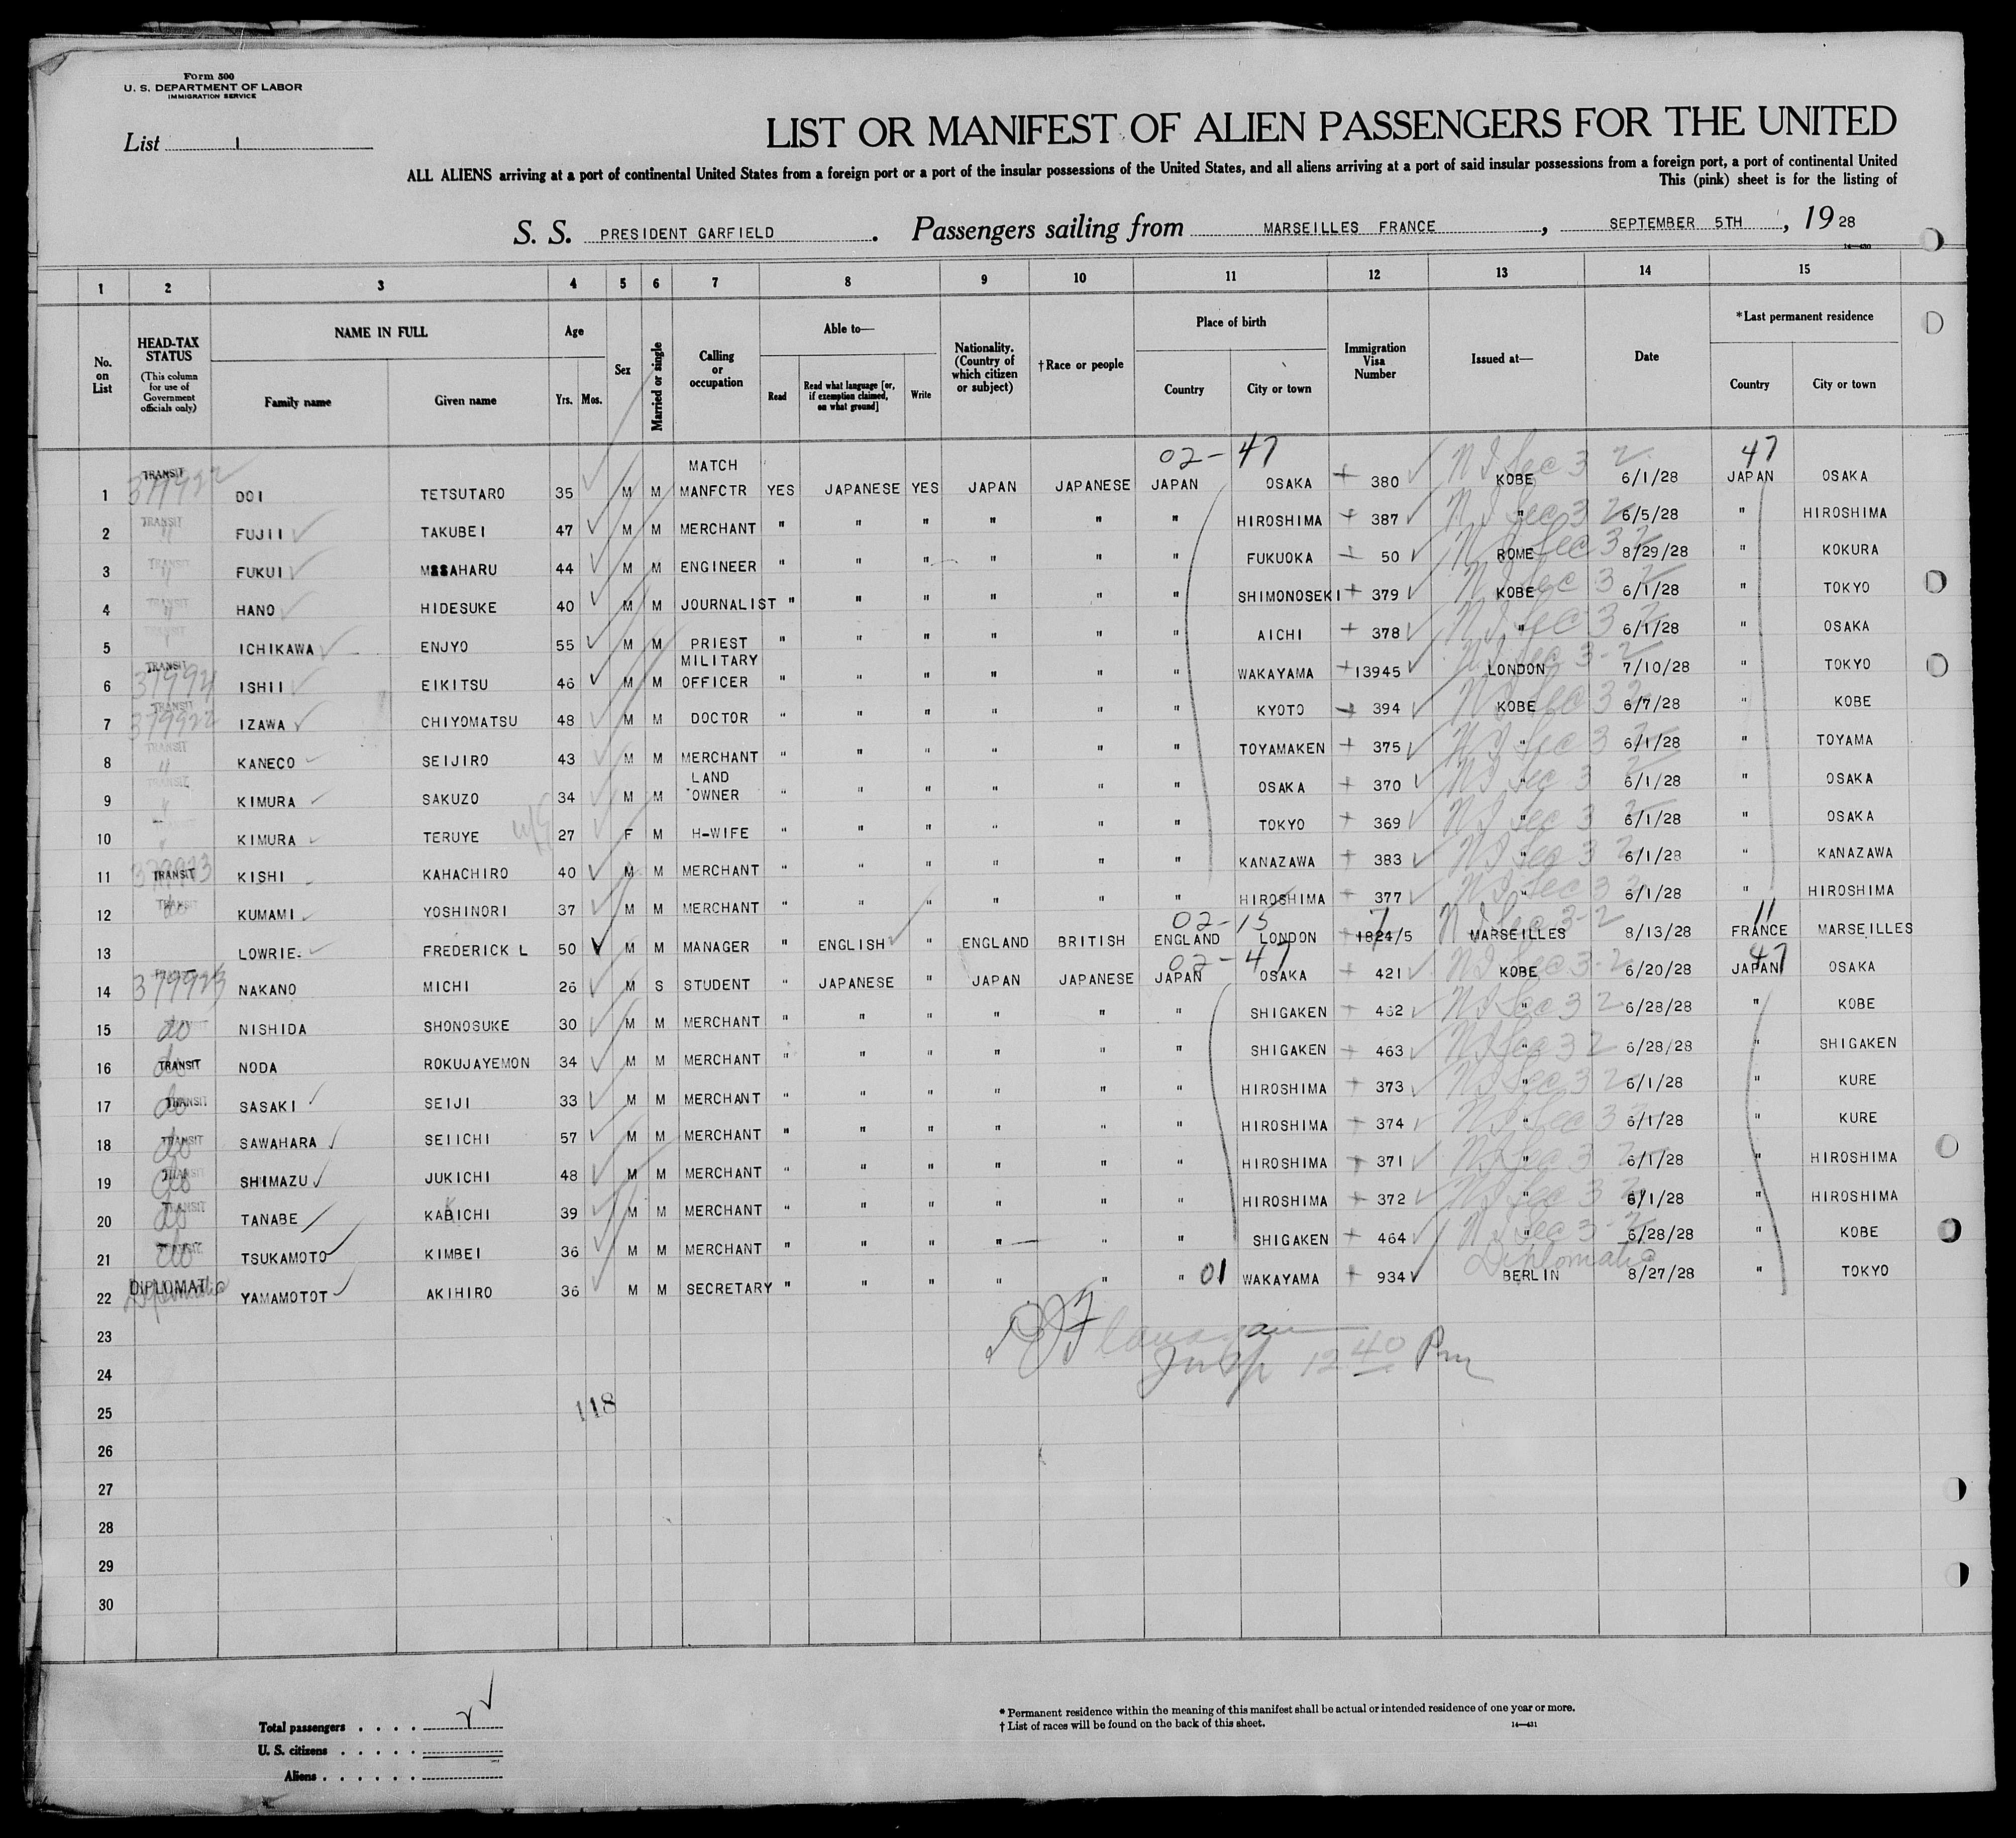 Form 500
U. S. DEPARTMENT OF LABOR
IMMIGRATION SERVICE
List 1
LIST OR MANIFEST OF ALIEN PASSENGERS FOR THE UNITED
ALL ALIENS arriving at a port of continental United States from a foreign port or a port of the insular possessions of the United States, and all aliens arriving at a port of said insular possessions from a foreign port, a port of continental United
This (pink) sheet is for the listing of
S. S. PRESIDENT GARFIELD . Passengers sailing from MARSEILLES FRANCE , SEPTEMBER 5TH , 19 28
14—430
1 2 3 4 5 6 7 8 9 10 11 12 13 14 15
No. on List HEAD-TAX STATUS (This column for use of Government officials only) NAME IN FULL Family name Given name Age Yrs. Mos. Sex Married or single Calling or occupation Able to— Read Read what language [or, if exemption claimed, on what ground] Write Nationality. (Country of which citizen or subject) †Race or people Place of birth Country City or town Immigration Visa Number Issued at— Date *Last permanent residence Country City or town
02-47 47
1 TRANSIT 379922 DOI TETSUTARO 35 M M MATCH MANFCTR YES JAPANESE YES JAPAN JAPANESE JAPAN OSAKA 380 KOBE N I Sec 3 2 6/1/28 JAPAN OSAKA
2 TRANSIT " FUJII TAKUBEI 47 M M MERCHANT " " " " " " HIROSHIMA 387 " N I Sec 3 2 6/5/28 " HIROSHIMA
3 TRANSIT " FUKUI MSSAHARU 44 M M ENGINEER " " " " " " FUKUOKA 50 ROME N I Sec 3 2 8/29/28 " KOKURA
4 TRANSIT " HANO HIDESUKE 40 M M JOURNALIST " " " " " " SHIMONOSEKI 379 KOBE N I Sec 3 2 6/1/28 " TOKYO
5 ICHIKAWA ENJYO 55 M M PRIEST " " " " " " AICHI 378 " N I Sec 3 2 6/1/28 " OSAKA
6 TRANSIT ISHII EIKITSU 46 M M MILITARY OFFICER " " " " " " WAKAYAMA 13945 LONDON N I Sec 3-2 7/10/28 " TOKYO
7 TRANSIT 379922 IZAWA CHIYOMATSU 48 M M DOCTOR " " " " " " KYOTO 394 KOBE N I Sec 3 2 6/7/28 " KOBE
8 TRANSIT " KANECO SEIJIRO 43 M M MERCHANT " " " " " " TOYAMAKEN 375 " N I Sec 3 2 6/1/28 " TOYAMA
9 TRANSIT " KIMURA SAKUZO 34 M M LAND OWNER " " " " " " OSAKA 370 " N I Sec 3 2 6/1/28 " OSAKA
10 TRANSIT " KIMURA TERUYE 27 F M H-WIFE " " " " " " TOKYO 369 " N I Sec 3 2 6/1/28 " OSAKA
11 TRANSIT 379923 KISHI KAHACHIRO 40 M M MERCHANT " " " " " " KANAZAWA 383 " N I Sec 3 2 6/1/28 " KANAZAWA
12 TRANSIT do KUMAMI YOSHINORI 37 M M MERCHANT " " " " " " HIROSHIMA 377 " N I Sec 3 2 6/1/28 " HIROSHIMA
02-15 7 11
13 LOWRIE FREDERICK L 50 M M MANAGER " ENGLISH " ENGLAND BRITISH ENGLAND LONDON 1824/5 MARSEILLES N I Sec 3-2 8/13/28 FRANCE MARSEILLES
02-47 47
14 TRANSIT 379923 NAKANO MICHI 26 M S STUDENT " JAPANESE " JAPAN JAPANESE JAPAN OSAKA 421 KOBE N I Sec 3-2 6/20/28 JAPAN OSAKA
15 TRANSIT do NISHIDA SHONOSUKE 30 M M MERCHANT " " " " " " SHIGAKEN 462 " N I Sec 3 2 6/28/28 " KOBE
16 TRANSIT do NODA ROKUJAYEMON 34 M M MERCHANT " " " " " " SHIGAKEN 463 " N I Sec 3 2 6/28/28 " SHIGAKEN
17 TRANSIT do SASAKI SEIJI 33 M M MERCHANT " " " " " " HIROSHIMA 373 " N I Sec 3 2 6/1/28 " KURE
18 TRANSIT do SAWAHARA SEIICHI 57 M M MERCHANT " " " " " " HIROSHIMA 374 " N I Sec 3 2 6/1/28 " KURE
19 TRANSIT do SHIMAZU JUKICHI 48 M M MERCHANT " " " " " " HIROSHIMA 371 " N I Sec 3 2 6/1/28 " HIROSHIMA
20 TRANSIT do TANABE KAKICHI 39 M M MERCHANT " " " " " " HIROSHIMA 372 " N I Sec 3 2 6/1/28 " HIROSHIMA
21 TRANSIT do TSUKAMOTO KIMBEI 36 M M MERCHANT " " " " " " SHIGAKEN 464 " N I Sec 3-2 6/28/28 " KOBE
22 DIPLOMATIC Diplomatic YAMAMOTOT AKIHIRO 36 M M SECRETARY " " " " " " 01 WAKAYAMA 934 BERLIN Diplomatic 8/27/28 " TOKYO
23
Flanagan
24 Insp 12 40 Pm
25 118
26
27
28
29
30
Total passengers . . . .
U. S. citizens . . . . .
Aliens . . . . . .
* Permanent residence within the meaning of this manifest shall be actual or intended residence of one year or more.
† List of races will be found on the back of this sheet.
14—431